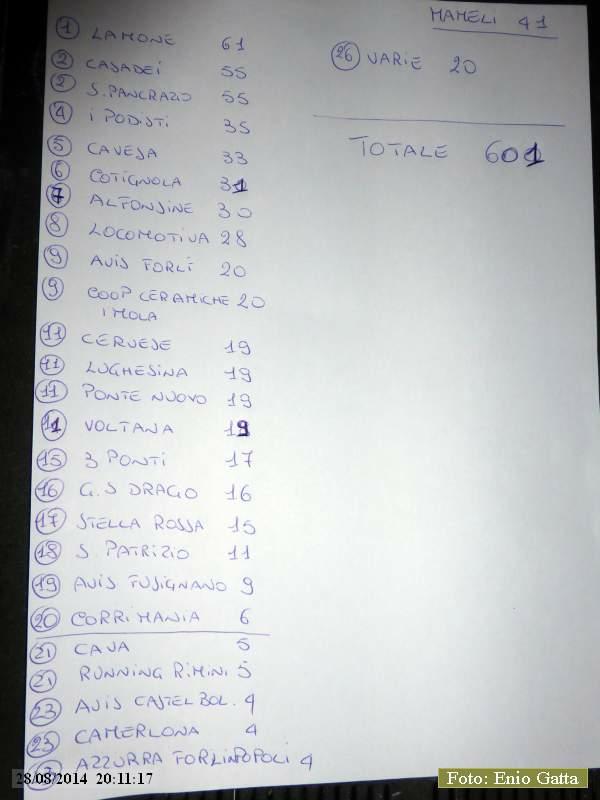 MAMELI 41
1 LAMONE 61
2 CASADEI 55
2 S. PANCRAZIO 55
4 I PODISTI 35
5 CAVEJA 33
6 COTIGNOLA 31
7 ALFONSINE 30
8 LOCOMOTIVA 28
9 AVIS FORLÌ 20
9 COOP CERAMICHE 20
IMOLA
11 CERVESE 19
11 LUGHESINA 19
11 PONTE NUOVO 19
11 VOLTANA 19
15 3 PONTI 17
16 G.S DRAGO 16
17 STELLA ROSSA 15
18 S. PATRIZIO 11
19 AVIS FUSIGNANO 9
20 CORRIMANIA 6
21 CAVA 5
21 RUNNING RIMINI 5
23 AVIS CASTEL BOL. 4
23 CAMERLONA 4
AZZURRA FORLIMPOPOLI 4
26 VARIE 20
TOTALE 601
28/08/2014 20:11:17
Foto: Enio Gatta